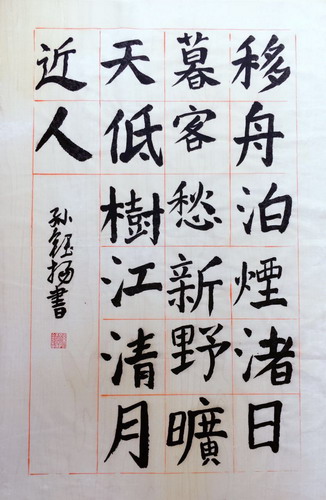 移舟泊煙渚日
暮客愁新野曠
天低樹江清月
近人
孙鈺扬書